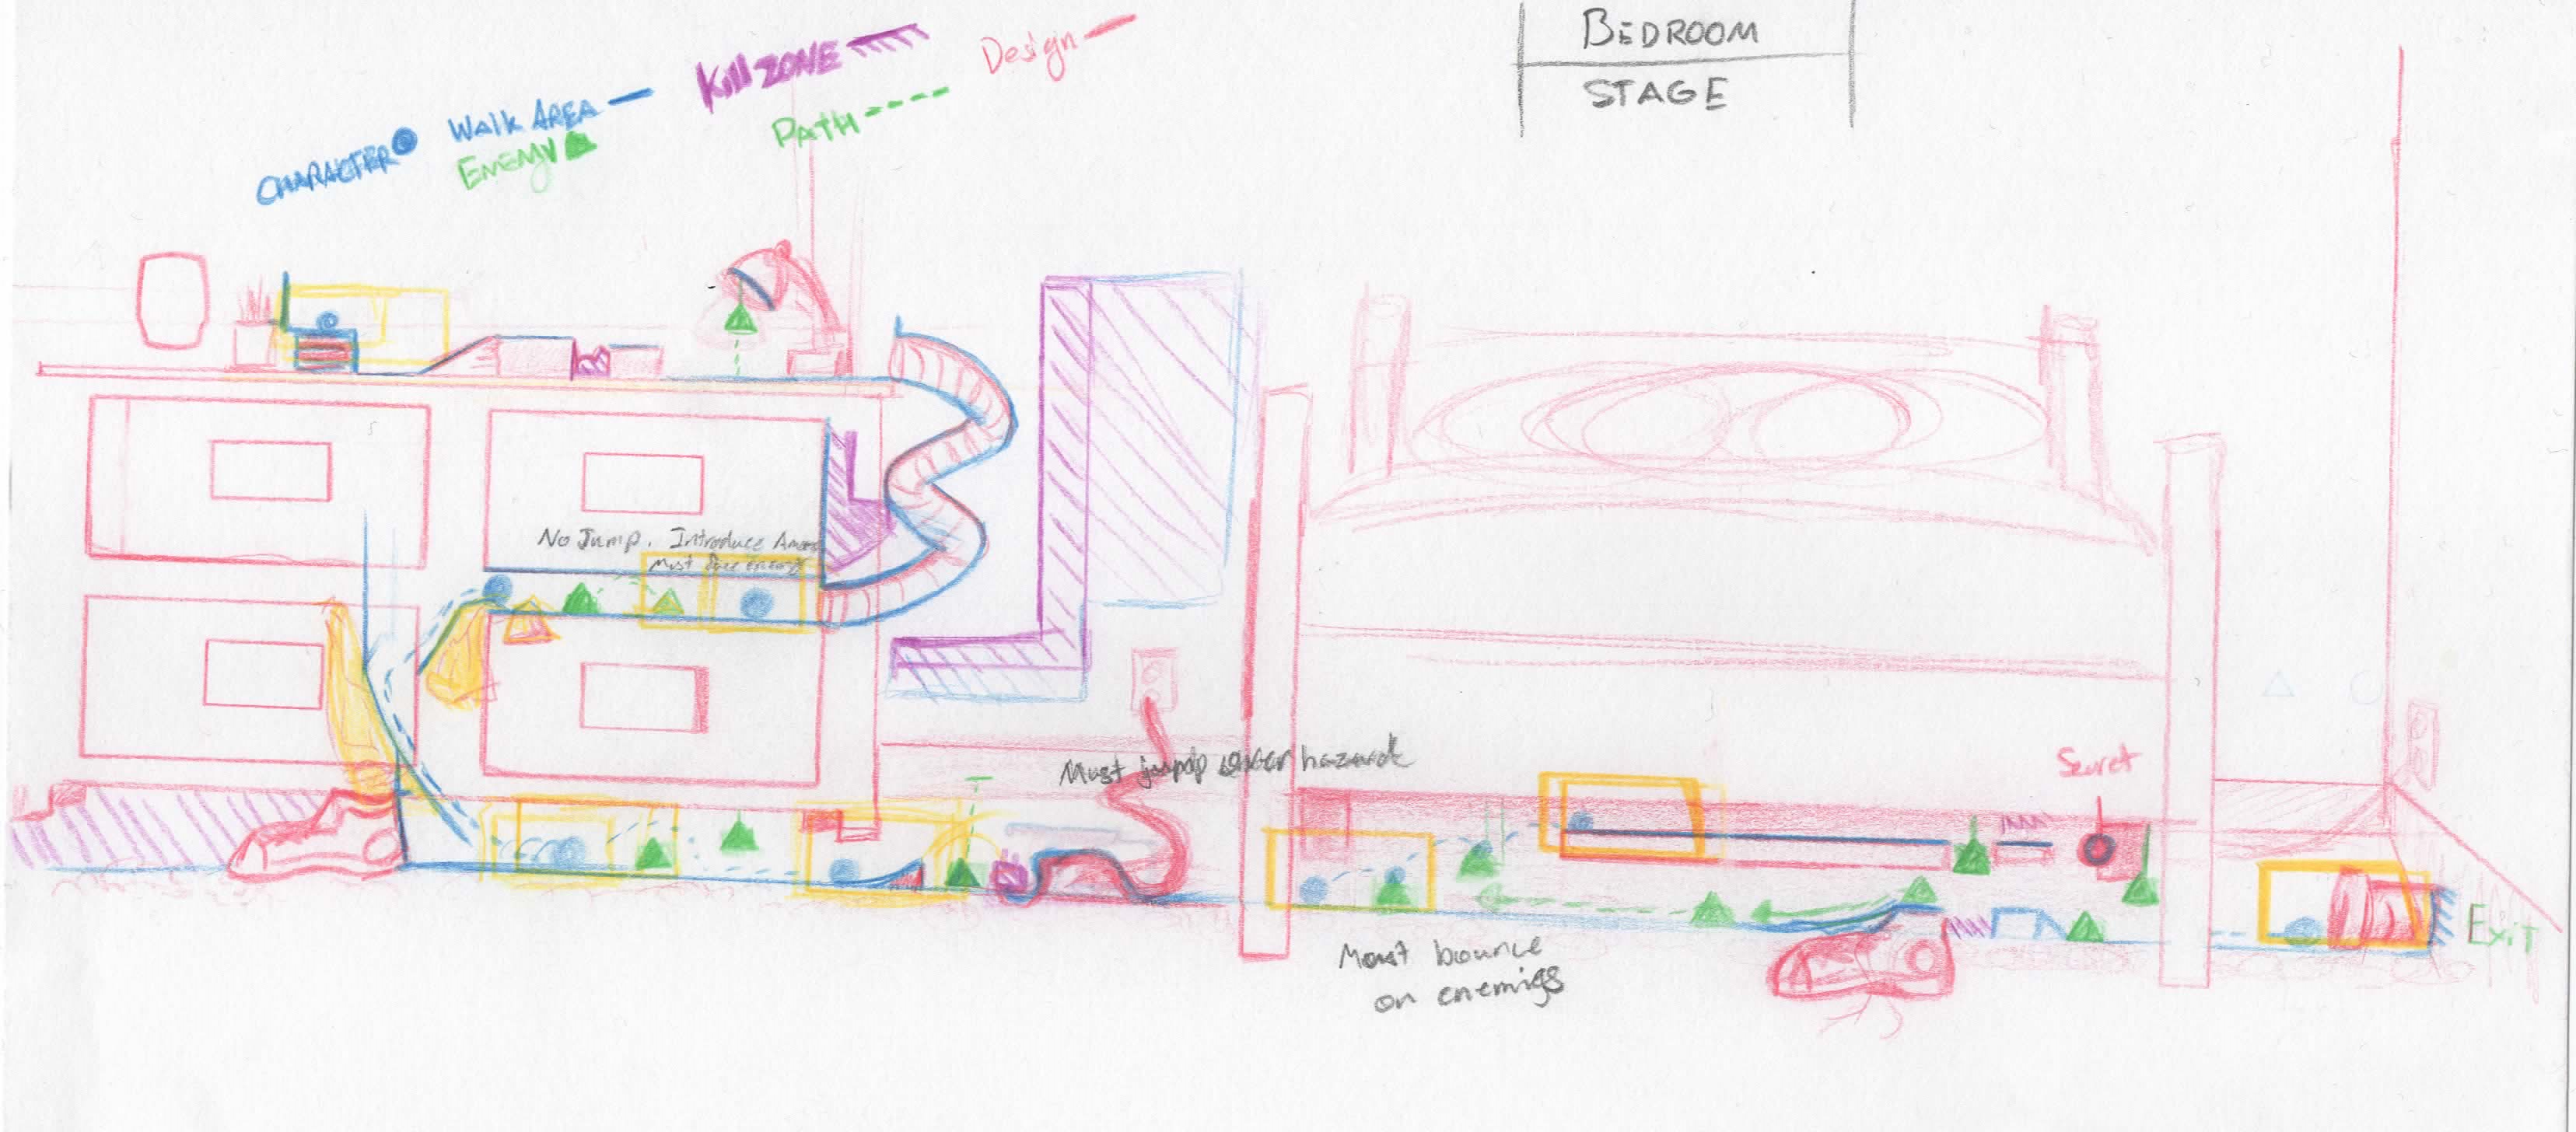 BEDROOM
STAGE
CHARACTER
Walk AREA
ENEMY
Kill ZONE
PATH
Design
No Jump. Introduce
Must
Must over hazard
Secret
Exit
Must bounce
on enemies